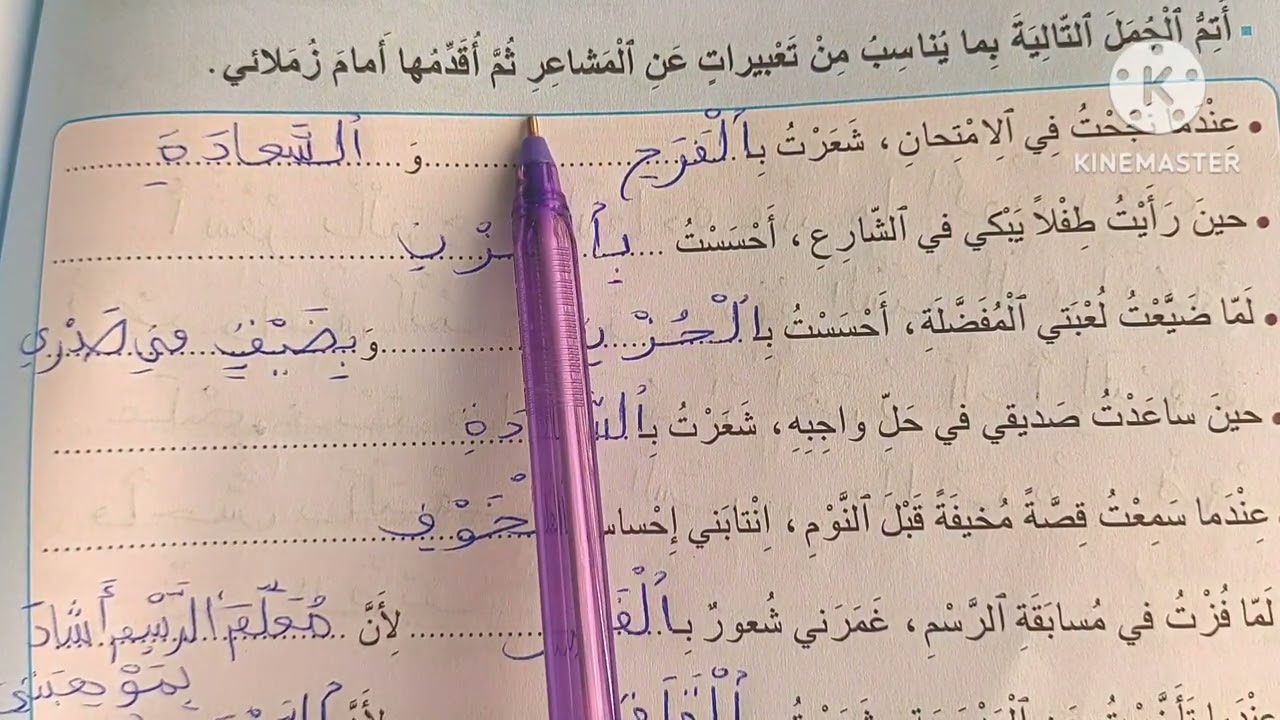 أُتِمُّ ٱلْجُمَلَ ٱلتّالِيَةَ بِما يُناسِبُ مِنْ تَعْبيراتٍ عَنِ ٱلْمَشاعِرِ ثُمَّ أُقَدِّمُها أَمامَ زُمَلائي.
KINEMASTER
عِنْدَما نَجَحْتُ فِي ٱلِامْتِحانِ، شَعَرْتُ بِٱلْفَرَحِ وَ ٱلسَّعادَةِ
حينَ رَأَيْتُ طِفْلاً يَبْكي في ٱلشّارِعِ، أَحْسَسْتُ
لَمّا ضَيَّعْتُ لُعْبَتي ٱلْمُفَضَّلَةِ، أَحْسَسْتُ بِٱلْحُزْنِ وَبِضَيْفٍ في صَدْري
حينَ ساعَدْتُ صَديقي في حَلِّ واجِبِهِ، شَعَرْتُ
عِنْدَما سَمِعْتُ قِصَّةً مُخيفَةً قَبْلَ ٱلنَّوْمِ، اِنْتابَني
لَمّا فُزْتُ في مُسابَقَةِ ٱلرَّسْمِ، غَمَرَني شُعورٌ لِأَنَّ مُعَلِّمَ ٱلرَّسْمِ أَشادَ
بِمَوْهِبَتي